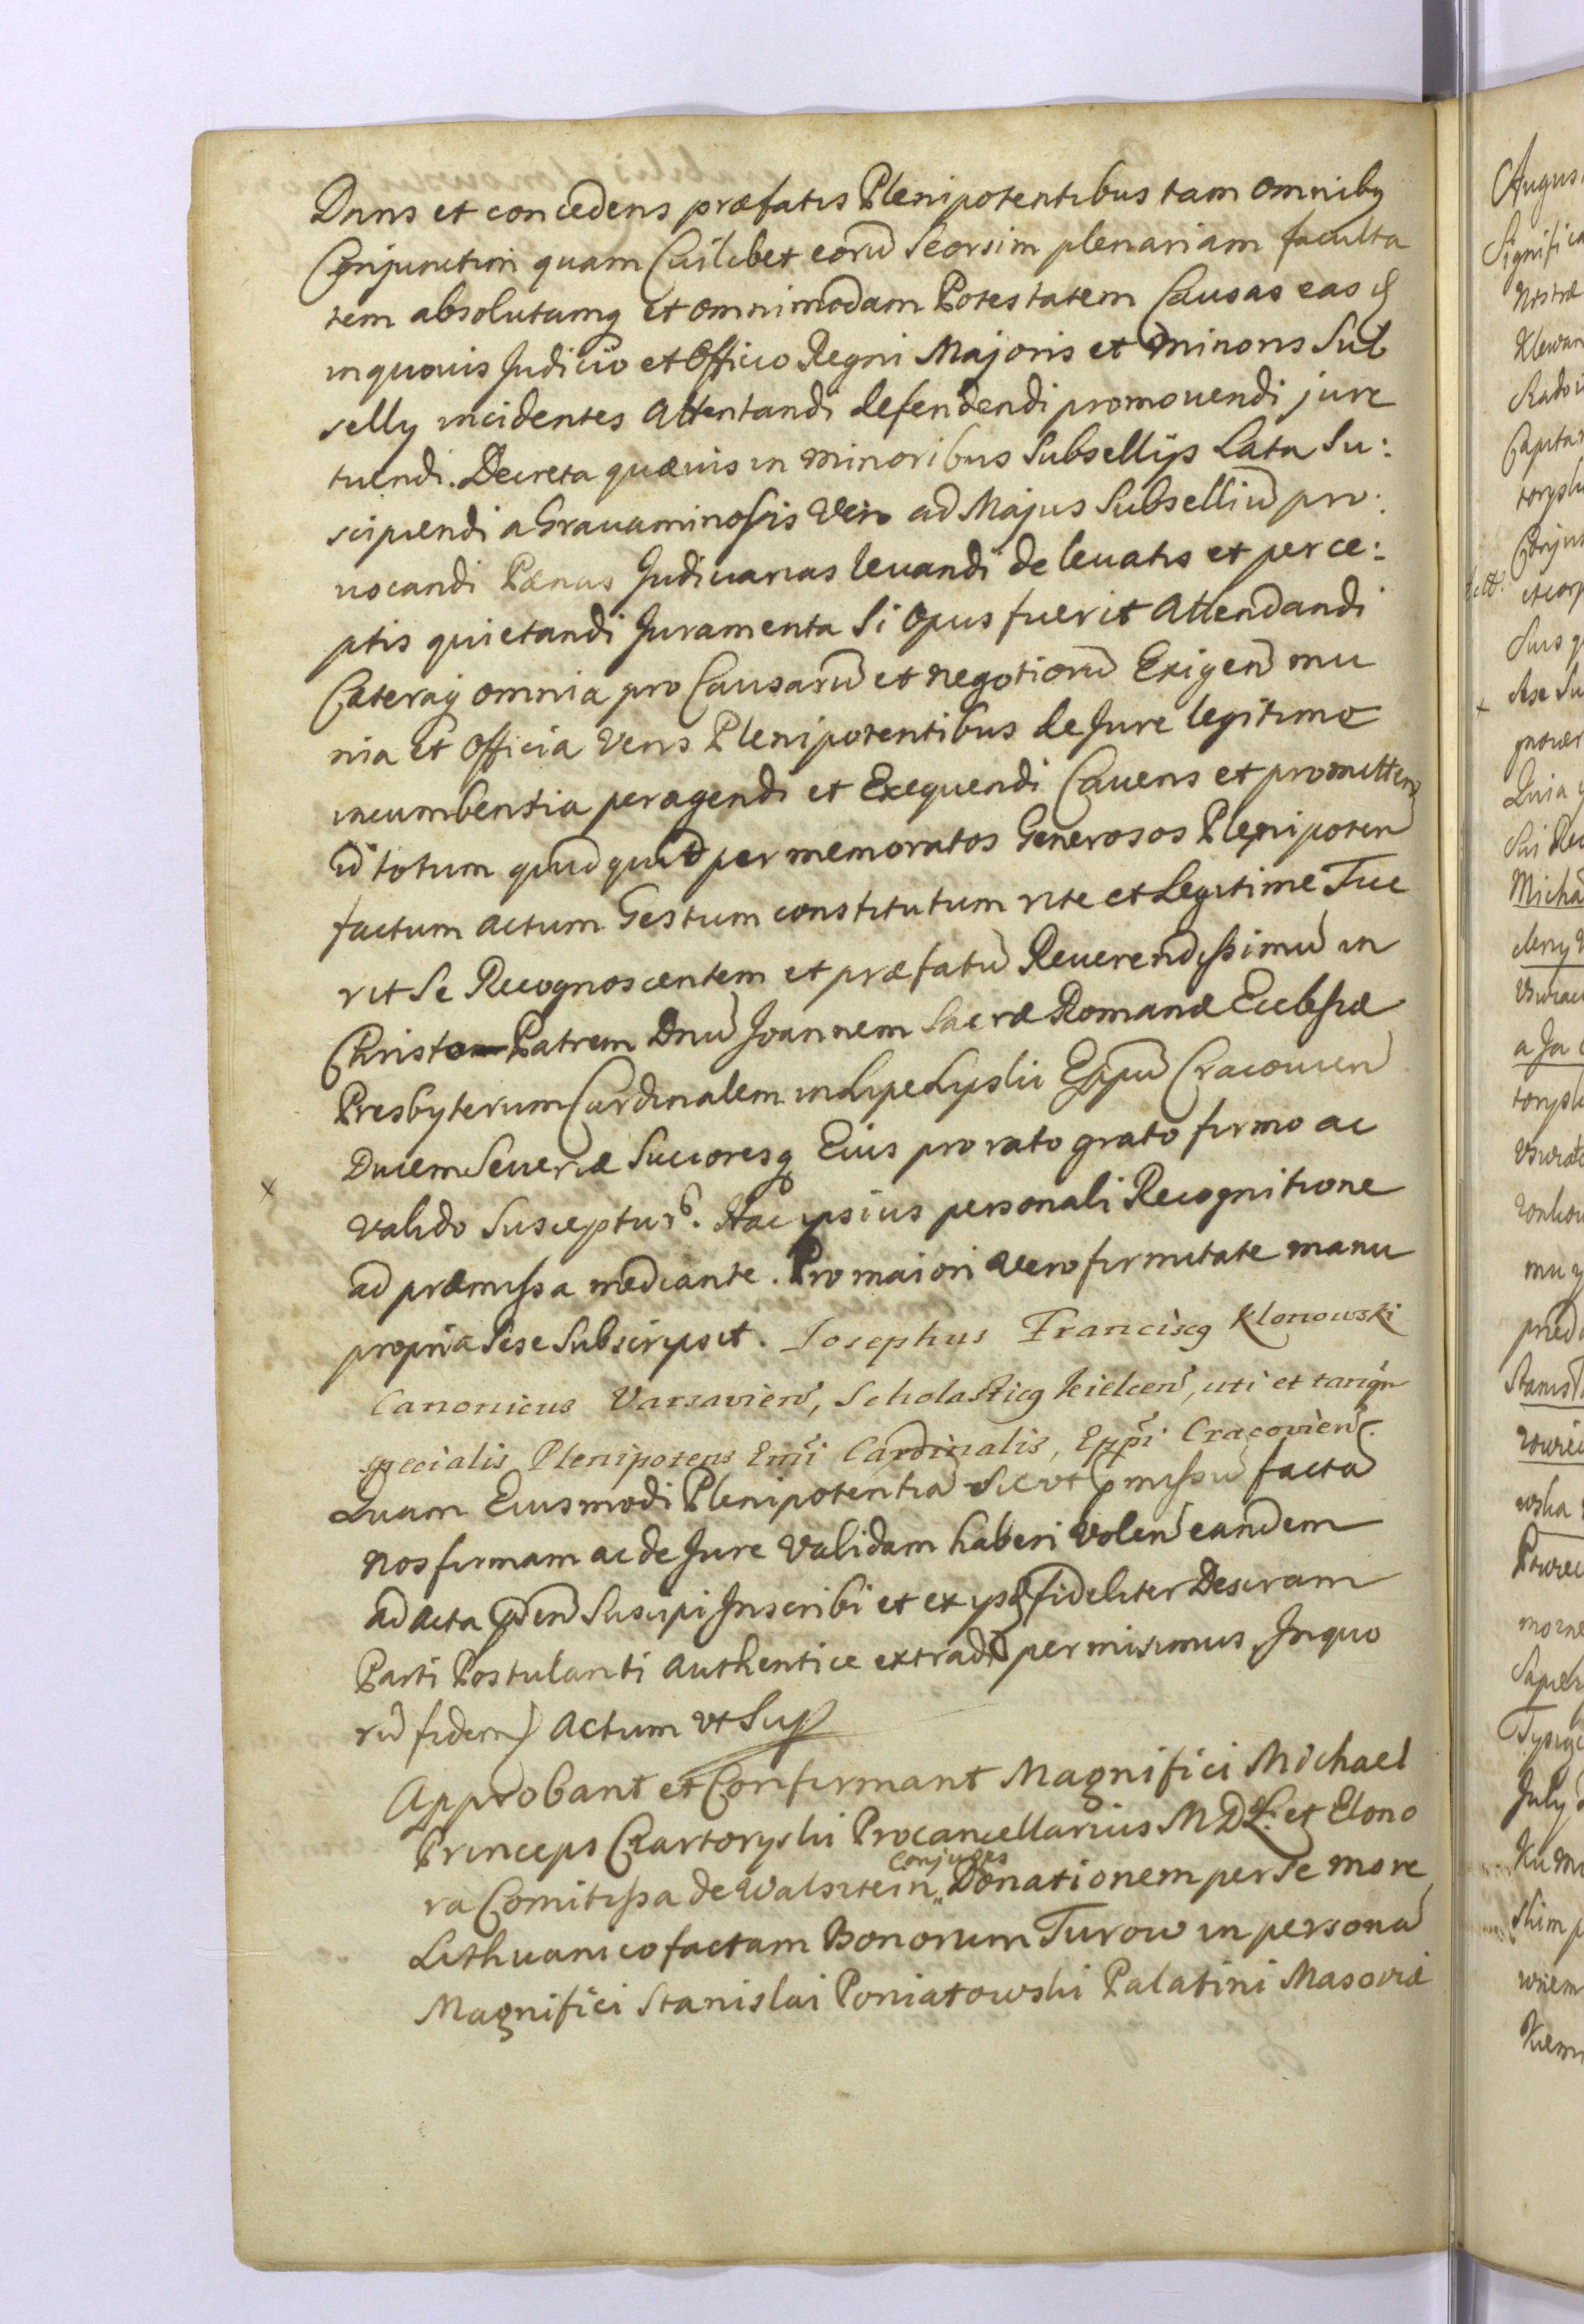 Dans et concedens præfatis Plenipotentibus tam omnibq
Conjunctim quam Cuilibet eorũ Seorsim plenariam faculta
tem absolutamq et omnimodam Potestatem Causas easq
in quovis Judicio et Officio Regni Majoris et minoris Sub
sellÿ incidentes Attentandi defendendi promouendi jure
tuendi. Decreta quævis in minoribus Subsellijs Lata Su:
scipiendi a Grauaminosis Vero ad Majus Subselliũ pro:
uocandi Pænas Judiciarias leuandi de leuatis et perce:
ptis quietandi Juramenta Si Opus fuerit Attendandi
Cæteraq omnia pro Causarũ et negotiorũ Exigen mu
nia et Officia Veris Plenipotentibus de Jure legitimo
incumbentia peragendi et Exequendi Cavens et promitten
id totum quidquid per memoratos Generosos Plenipoten
factum actum Gestum constitutum rite et Legitime Fue
rit Se Recognoscentem et præfatũ Reuerendissimũ in
Christo Patrem Dnũ Joannem Sacræ Romanæ Ecclesiæ
Presbyterum Cardinalem in Lipe Lipski Eppũ Cracouien
Ducem Seueriæ Succoresq Eius pro rato grato firmo ac
valido Suscepturọ. Hac ipsius personali Recognitione
ad præmissa mediante. Pro maiori vero firmitate manu
propria Sese Subscripsit. Josephus Franciscq Klonowski
Canonicus Varsavien, Scholasticq Kielcen, uti et tanqn
specialis Plenipotens Emi Cardinalis, Eppi Cracovien.
Quam Eiusmodi Plenipotentiã Sicut pmissũ factã
nos firmam ac de Jure Validam haberi Volen eandem
ad Acta pñ Suscipi Inscribi et ex ijsq fideliter Descram
Parti Postulanti Authentice extradi permisimus. In quo
rũ fidem) Actum Vt Sup
Approbant et Confirmant Magnifici Michael
Princeps Czartoryski Procancellarius M D L. et Elono
ra Comitissa de Walsztein Conjuges Donationem per Se more
Lithuanico factam Bonorum Turow in personã
Magnifici Stanislai Poniatowski Palatini Masoviæ